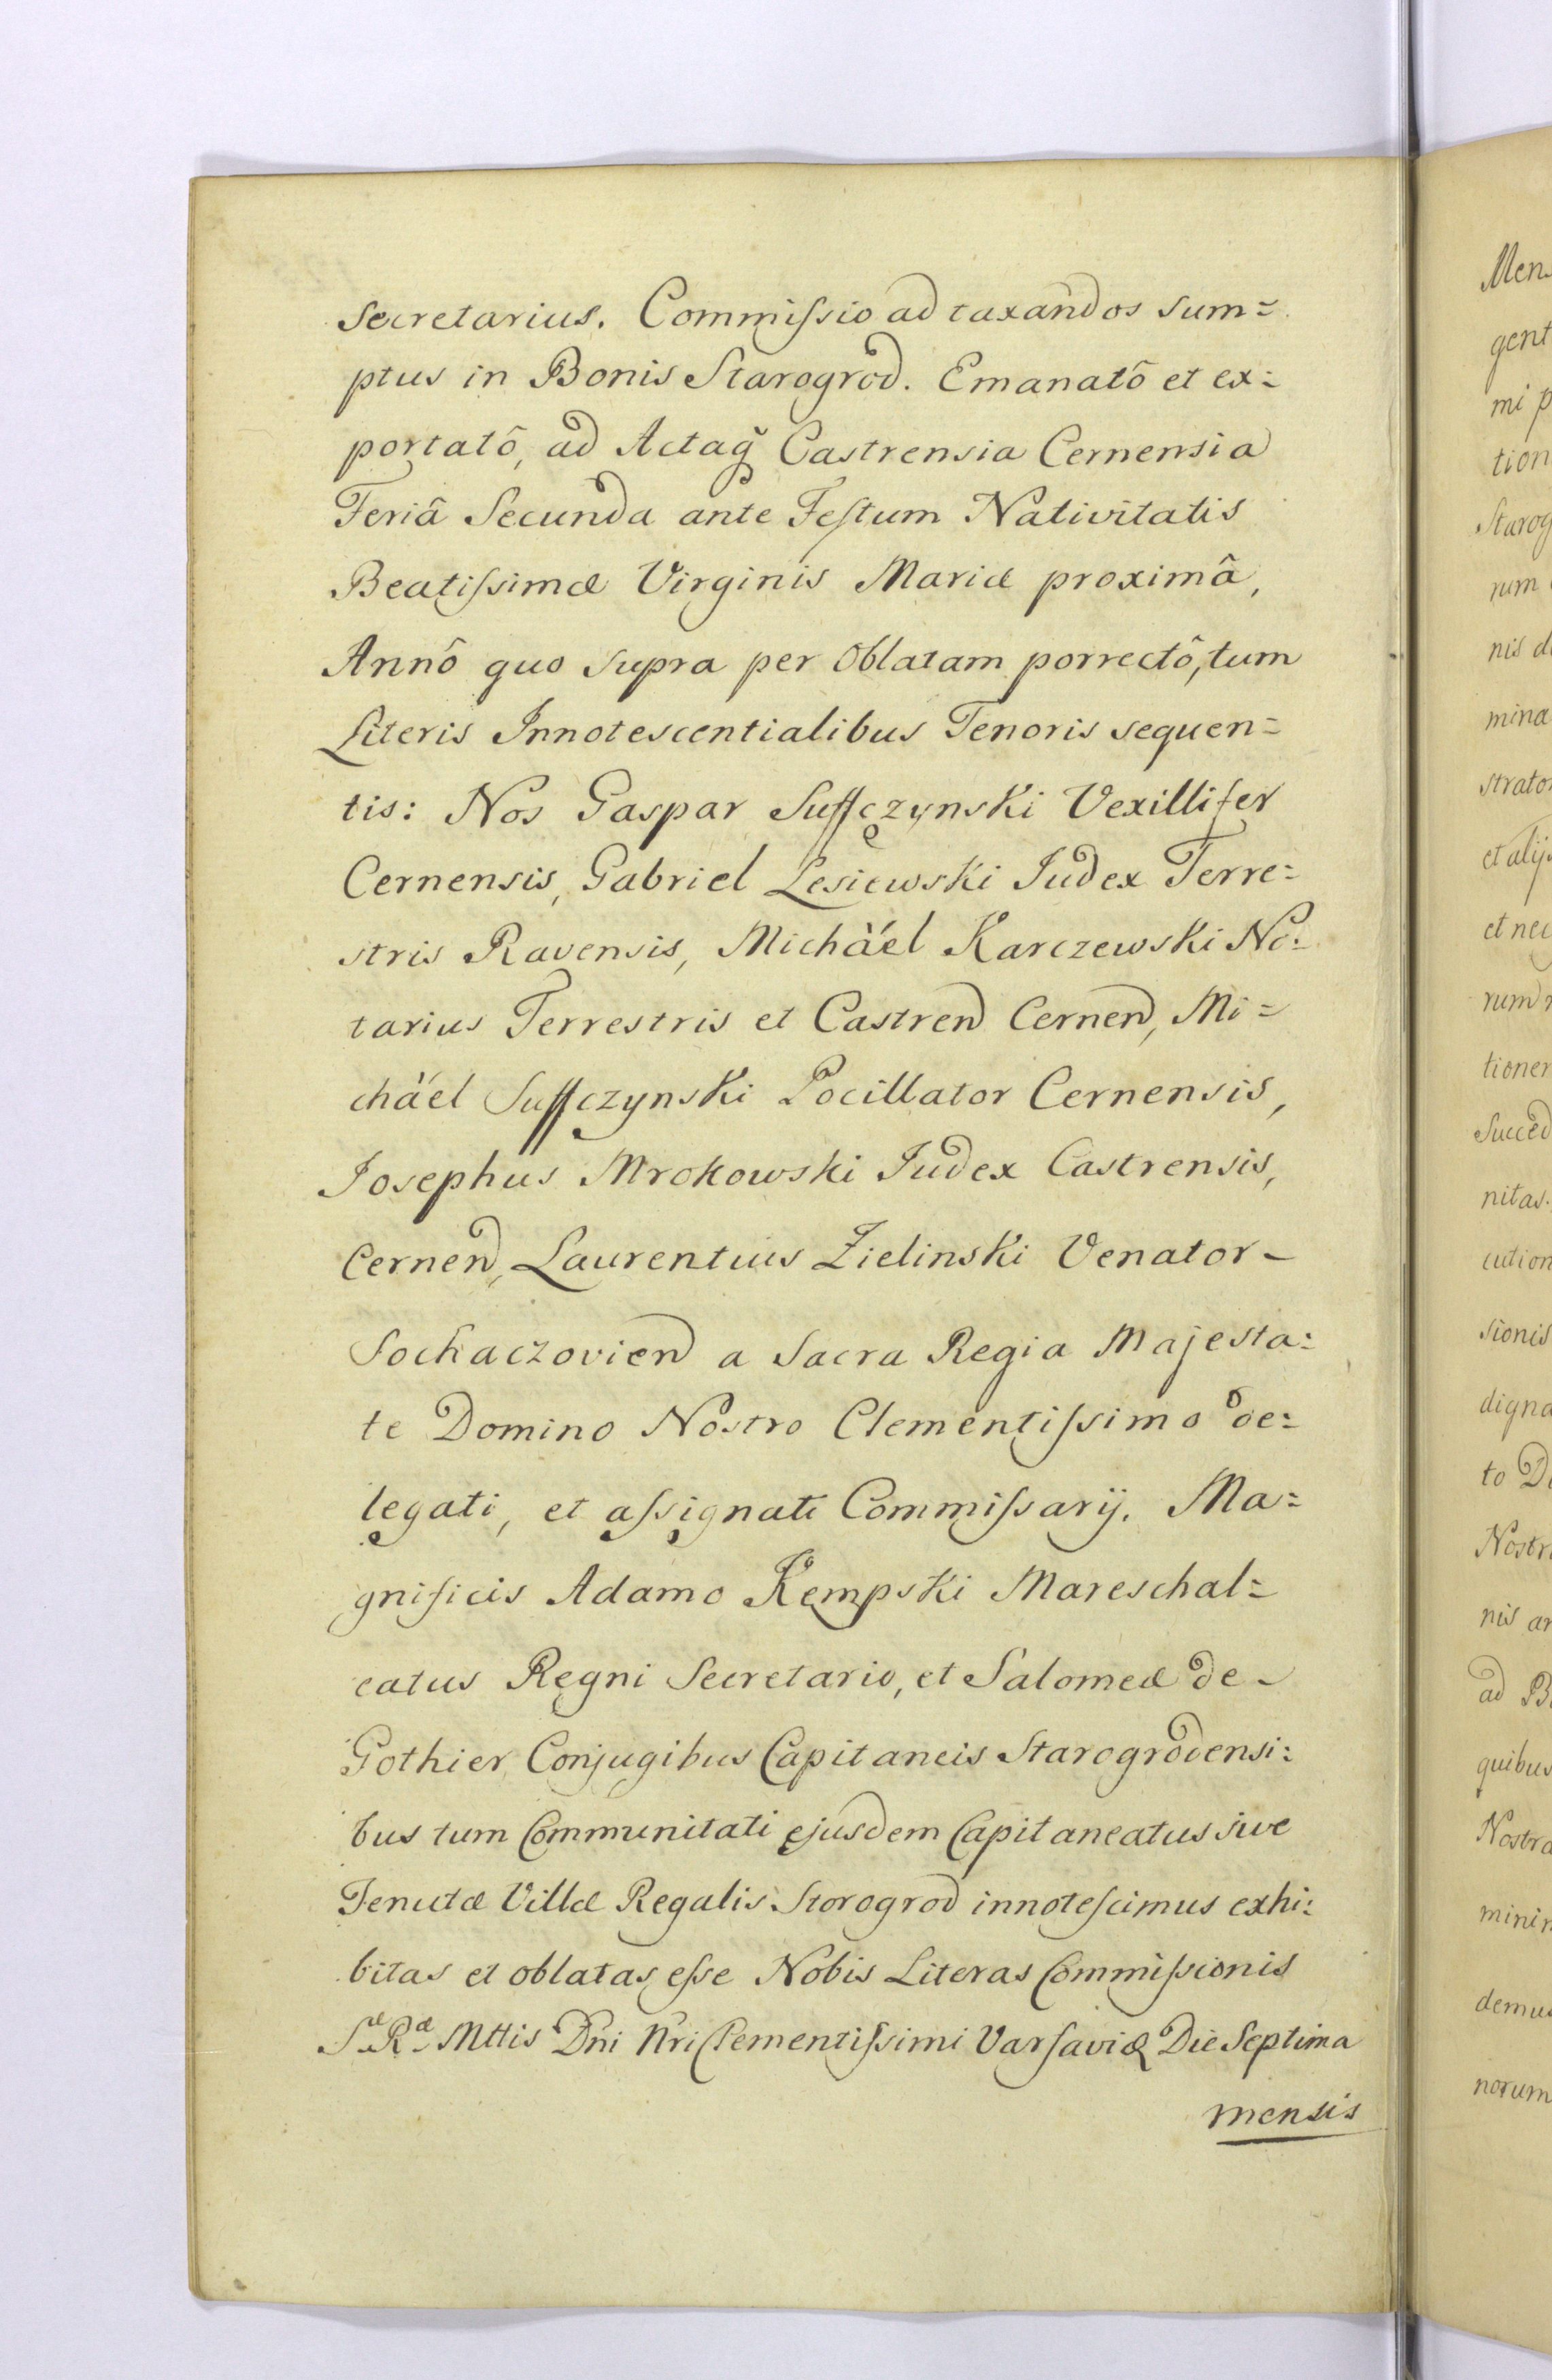 Secretarius. Commiſsio ad taxandos Sum=
ptus in Bonis Starogrod. Emanatô et ex=
portatô, ad Actaq̃ Castrensia Cernensia
Feriâ Secunda ante Feſtum Nativitatis
Beatiſsimæ Virginis Mariæ proximâ,
Annô quo supra per Oblatam porrectô, tum
Literis Innotescentialibus Tenoris sequen=
tis: Nos Gaspar Suffczynski Vexillifer
Cernensis, Gabriel Lesiewski Judex Terre=
stris Ravensis, Michäel Karczewski No=
tarius Terrestris et Castren̄d Cernen̄d, Mi=
chäel Suffczynski Pocillator Cernensis,
Josephus Mrokowski Judex Castrensis,
Cernend, Laurentius Zielinski Venator-
Sochaczoviend a Sacra Regia Majesta=
te Domino Nostro Clementiſsimo de=
legati, et aſsignati Commiſsarij. Ma=
gnificis Adamo Kempski Mareschal=
catus Regni Secretario, et Salomeæ de-
Gothier Conjugibus Capitaneis Starogrodensi=
bus tum Communitati ejusdem Capitaneatus sive
Tenutæ Villæ Regalis Storogrod innoteſcimus exhi=
bitas et oblatas eſse Nobis Literas Commiſsionis
Sæ Ræ Mttis Dni Nri Clementiſsimi Varſaviæ Die Septima
mensis
Men
gent
mi p
tion
Starog
rum
nis d
mina
strato
et alij
et nec
rum
tioner
Succed
nitas
cution
sionis
digna
to D
Nostr
nis ar
ad B
quibus
Nostra
minin
demus
norum